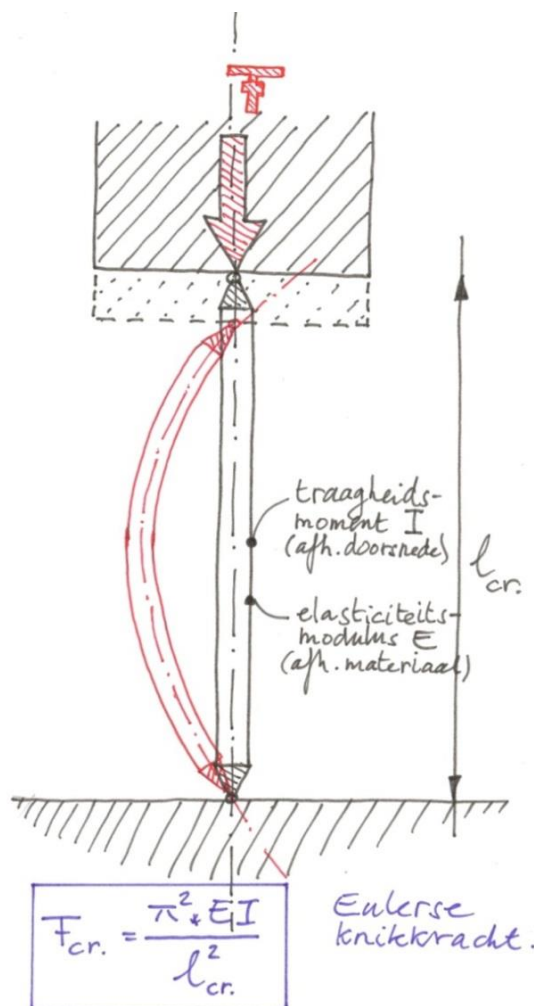 traagheids-
moment I
(afh. doorsnede)
elasticiteits-
modulus E
(afh. materiaal)
l cr.
F cr. = π² * E I / l² cr.
Eulerse
knikkracht.